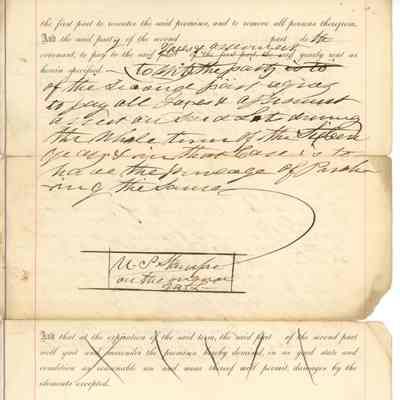 the first part to reenter the said premises, and to remove all persons thereon.
And the said party of the second part doth
taxes & assessments
covenant, to pay to the said of the first part the said yearly rent as
herein specified to wit the party
of the second part agrees
to pay all Taxes & assessment
on said Lot during
the whole term of the
years & in that Case is to
have the privelage of Purcha
sing the same
U.S. Stamps
on the
And that at the expiration of the said term, the said part of the second part
will quit and surrender the premises hereby demised, in as good state and
condition as reasonable use and wear thereof will permit, damages by the
elements excepted.